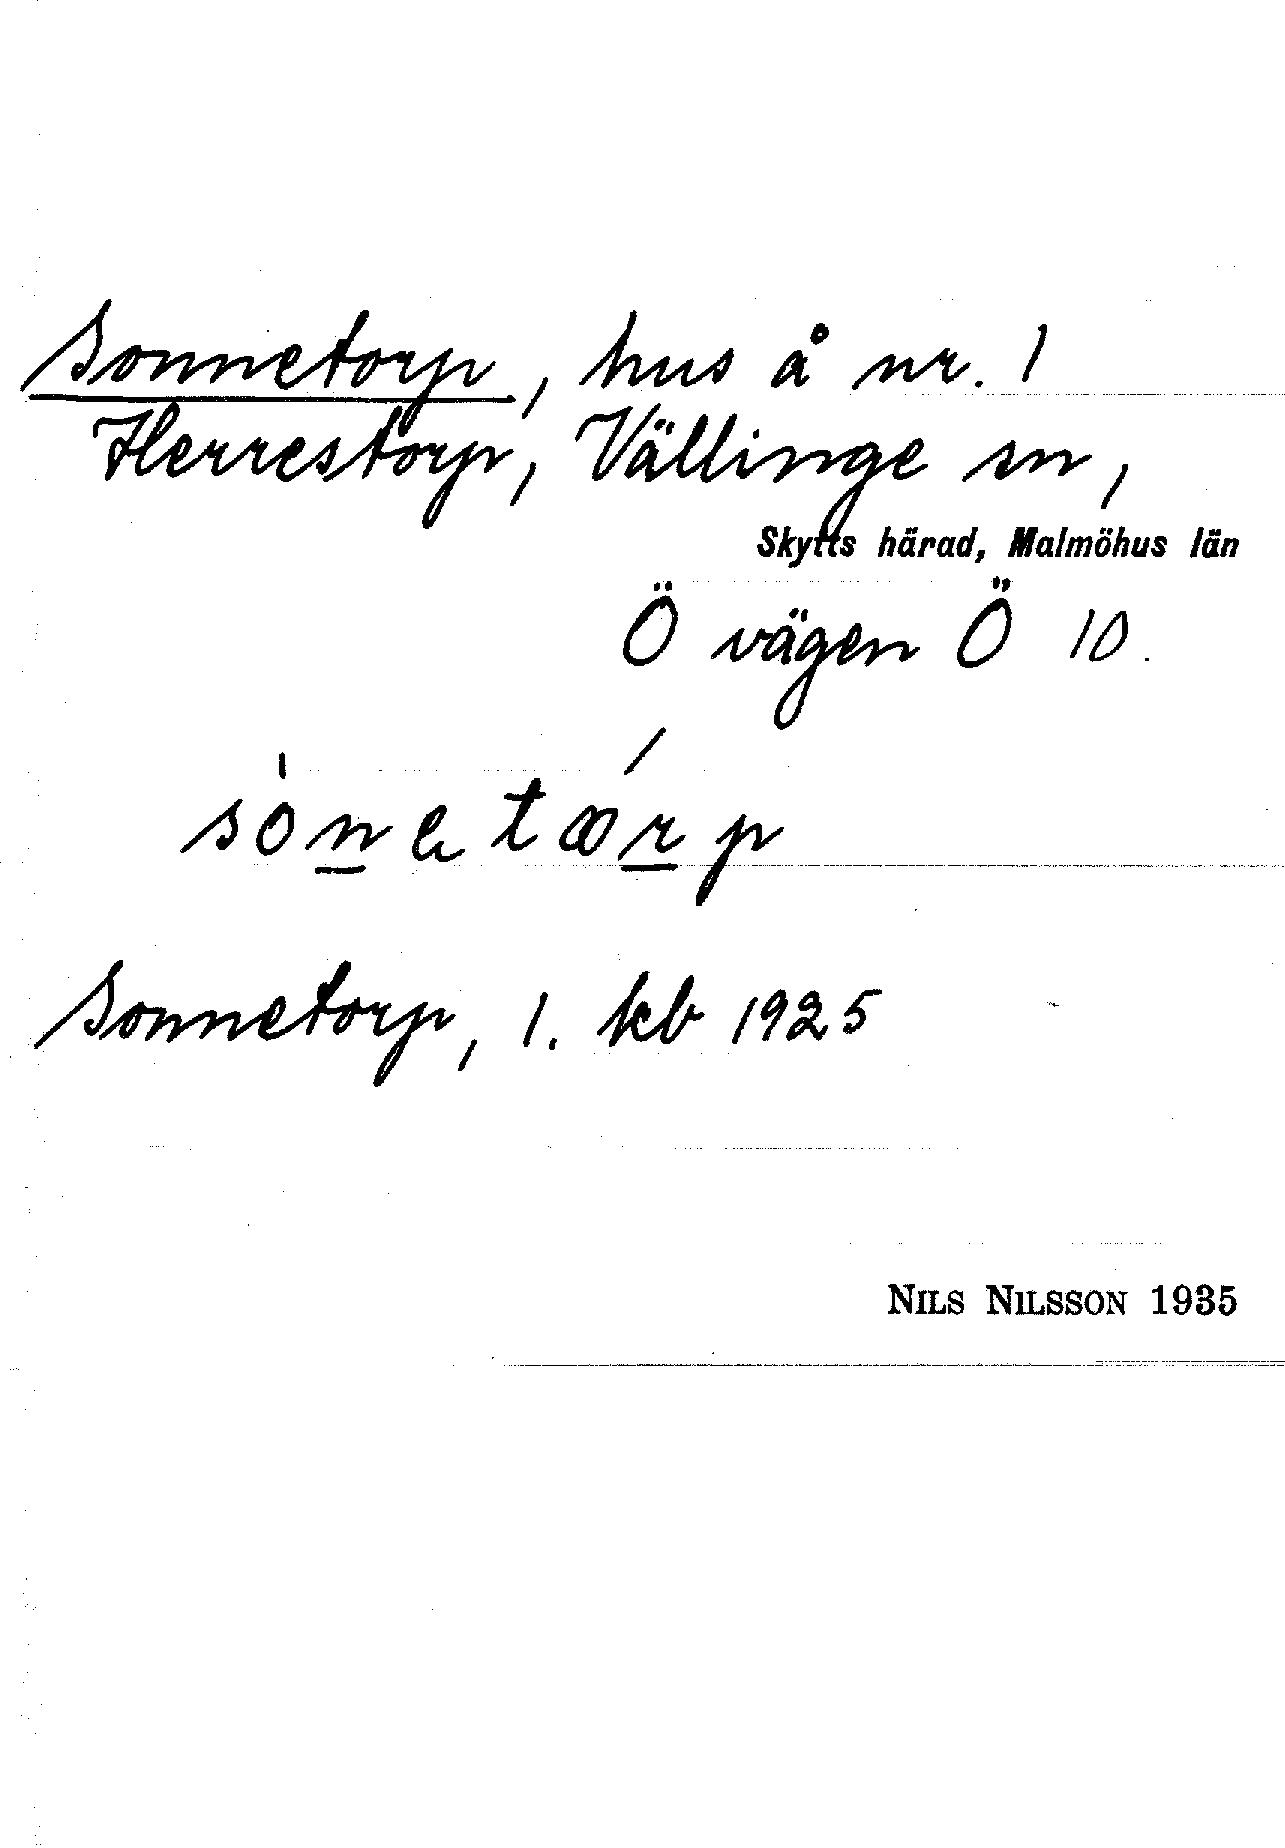 Sonnetorp, hus å nr. 1
Herrestorp, Vällinge sn,
Skytts härad, Malmöhus län
Ö vägen Ö 10.
Sonnetorp, 1. kb 1925
NILS NILSSON 1935